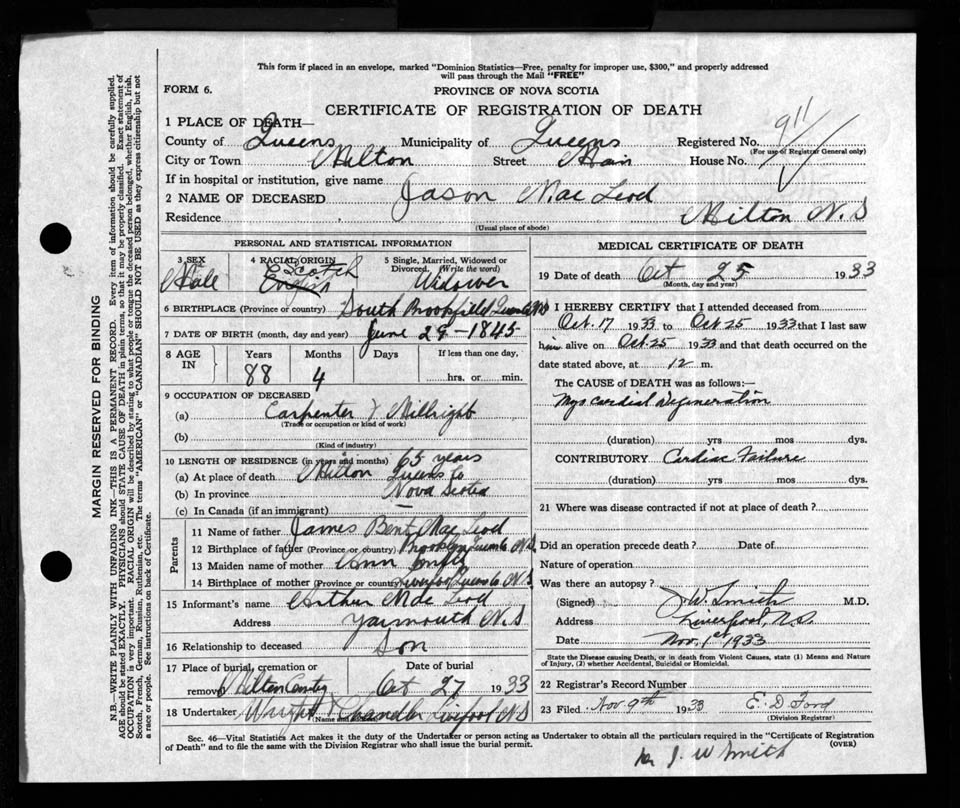 This form if placed in an envelope, marked "Dominion Statistics—Free, penalty for improper use, $300," and properly addressed
will pass through the Mail "FREE"
FORM 6.
PROVINCE OF NOVA SCOTIA
CERTIFICATE OF REGISTRATION OF DEATH
1 PLACE OF DEATH—
County of Queens Municipality of Queens Registered No. 911
(For use of Registrar General only)
City or Town Milton Street Main House No.
If in hospital or institution, give name
2 NAME OF DECEASED Jason MacLeod
Residence Milton N.S
(Usual place of abode)
PERSONAL AND STATISTICAL INFORMATION
3 SEX 4 RACIAL ORIGIN 5 Single, Married, Widowed or
Divorced. (Write the word)
Male Scotch English Widower
6 BIRTHPLACE (Province or country) South Brookfield Queens Co NS
7 DATE OF BIRTH (month, day and year) June 29-1845
8 AGE IN Years Months Days If less than one day,
88 4 hrs. or min.
9 OCCUPATION OF DECEASED
(a) Carpenter & Millright
(Trade or occupation or kind of work)
(b)
(Kind of industry)
10 LENGTH OF RESIDENCE (in years and months) 65 years
(a) At place of death Milton Queens Co
(b) In province Nova Scotia
(c) In Canada (if an immigrant)
Parents
11 Name of father James Bent MacLeod
12 Birthplace of father (Province or country) Brooklyn Queens Co N.S.
13 Maiden name of mother Ann
14 Birthplace of mother (Province or country) Liverpool Queens Co N.S
15 Informant's name Arthur MacLeod
Address Yarmouth N.S
16 Relationship to deceased Son
17 Place of burial, cremation or Date of burial
removal Milton Cemtry Oct 27 1933
18 Undertaker Wright & Chandler Liverpool NS
(Name and
MEDICAL CERTIFICATE OF DEATH
19 Date of death Oct 25 1933
(Month, day and year)
I HEREBY CERTIFY that I attended deceased from
Oct. 17 1933 to Oct 25 1933 that I last saw
him alive on Oct. 25 1933 and that death occurred on the
date stated above, at 12 m.
The CAUSE of DEATH was as follows:—
Myocardial Degeneration
(duration) yrs mos dys.
CONTRIBUTORY Cardiac Failure
(duration) yrs. mos. dys.
21 Where was disease contracted if not at place of death?
Did an operation precede death? Date of
Nature of operation
Was there an autopsy?
(Signed) J.W. Smith M.D.
Address Liverpool, N.S.
Date Nov. 1st 1933
State the Disease causing Death, or in death from Violent Causes, state (1) Means and Nature
of Injury, (2) whether Accidental, Suicidal or Homicidal.
22 Registrar's Record Number
23 Filed Nov 9th 1933 E. D Ford
(Division Registrar)
Sec. 46—Vital Statistics Act makes it the duty of the Undertaker or person acting as Undertaker to obtain all the particulars required in the "Certificate of Registration
of Death" and to file the same with the Division Registrar who shall issue the burial permit.
(OVER)
J. W Smith
MARGIN RESERVED FOR BINDING
N.B.—WRITE PLAINLY WITH UNFADING INK—THIS IS A PERMANENT RECORD. Every item of information should be carefully supplied.
AGE should be stated EXACTLY. PHYSICIANS should STATE CAUSE OF DEATH in plain terms, so that it may be properly classified. Exact statement of
OCCUPATION is very important. RACIAL ORIGIN will be described by stating to what people or tongue the deceased person belonged, whether English, Irish,
Scotch, French, German, Russian, Ruthenian, etc. The terms "AMERICAN" or "CANADIAN" SHOULD NOT BE USED as they express citizenship but not
a race or people. See instructions on back of Certificate.